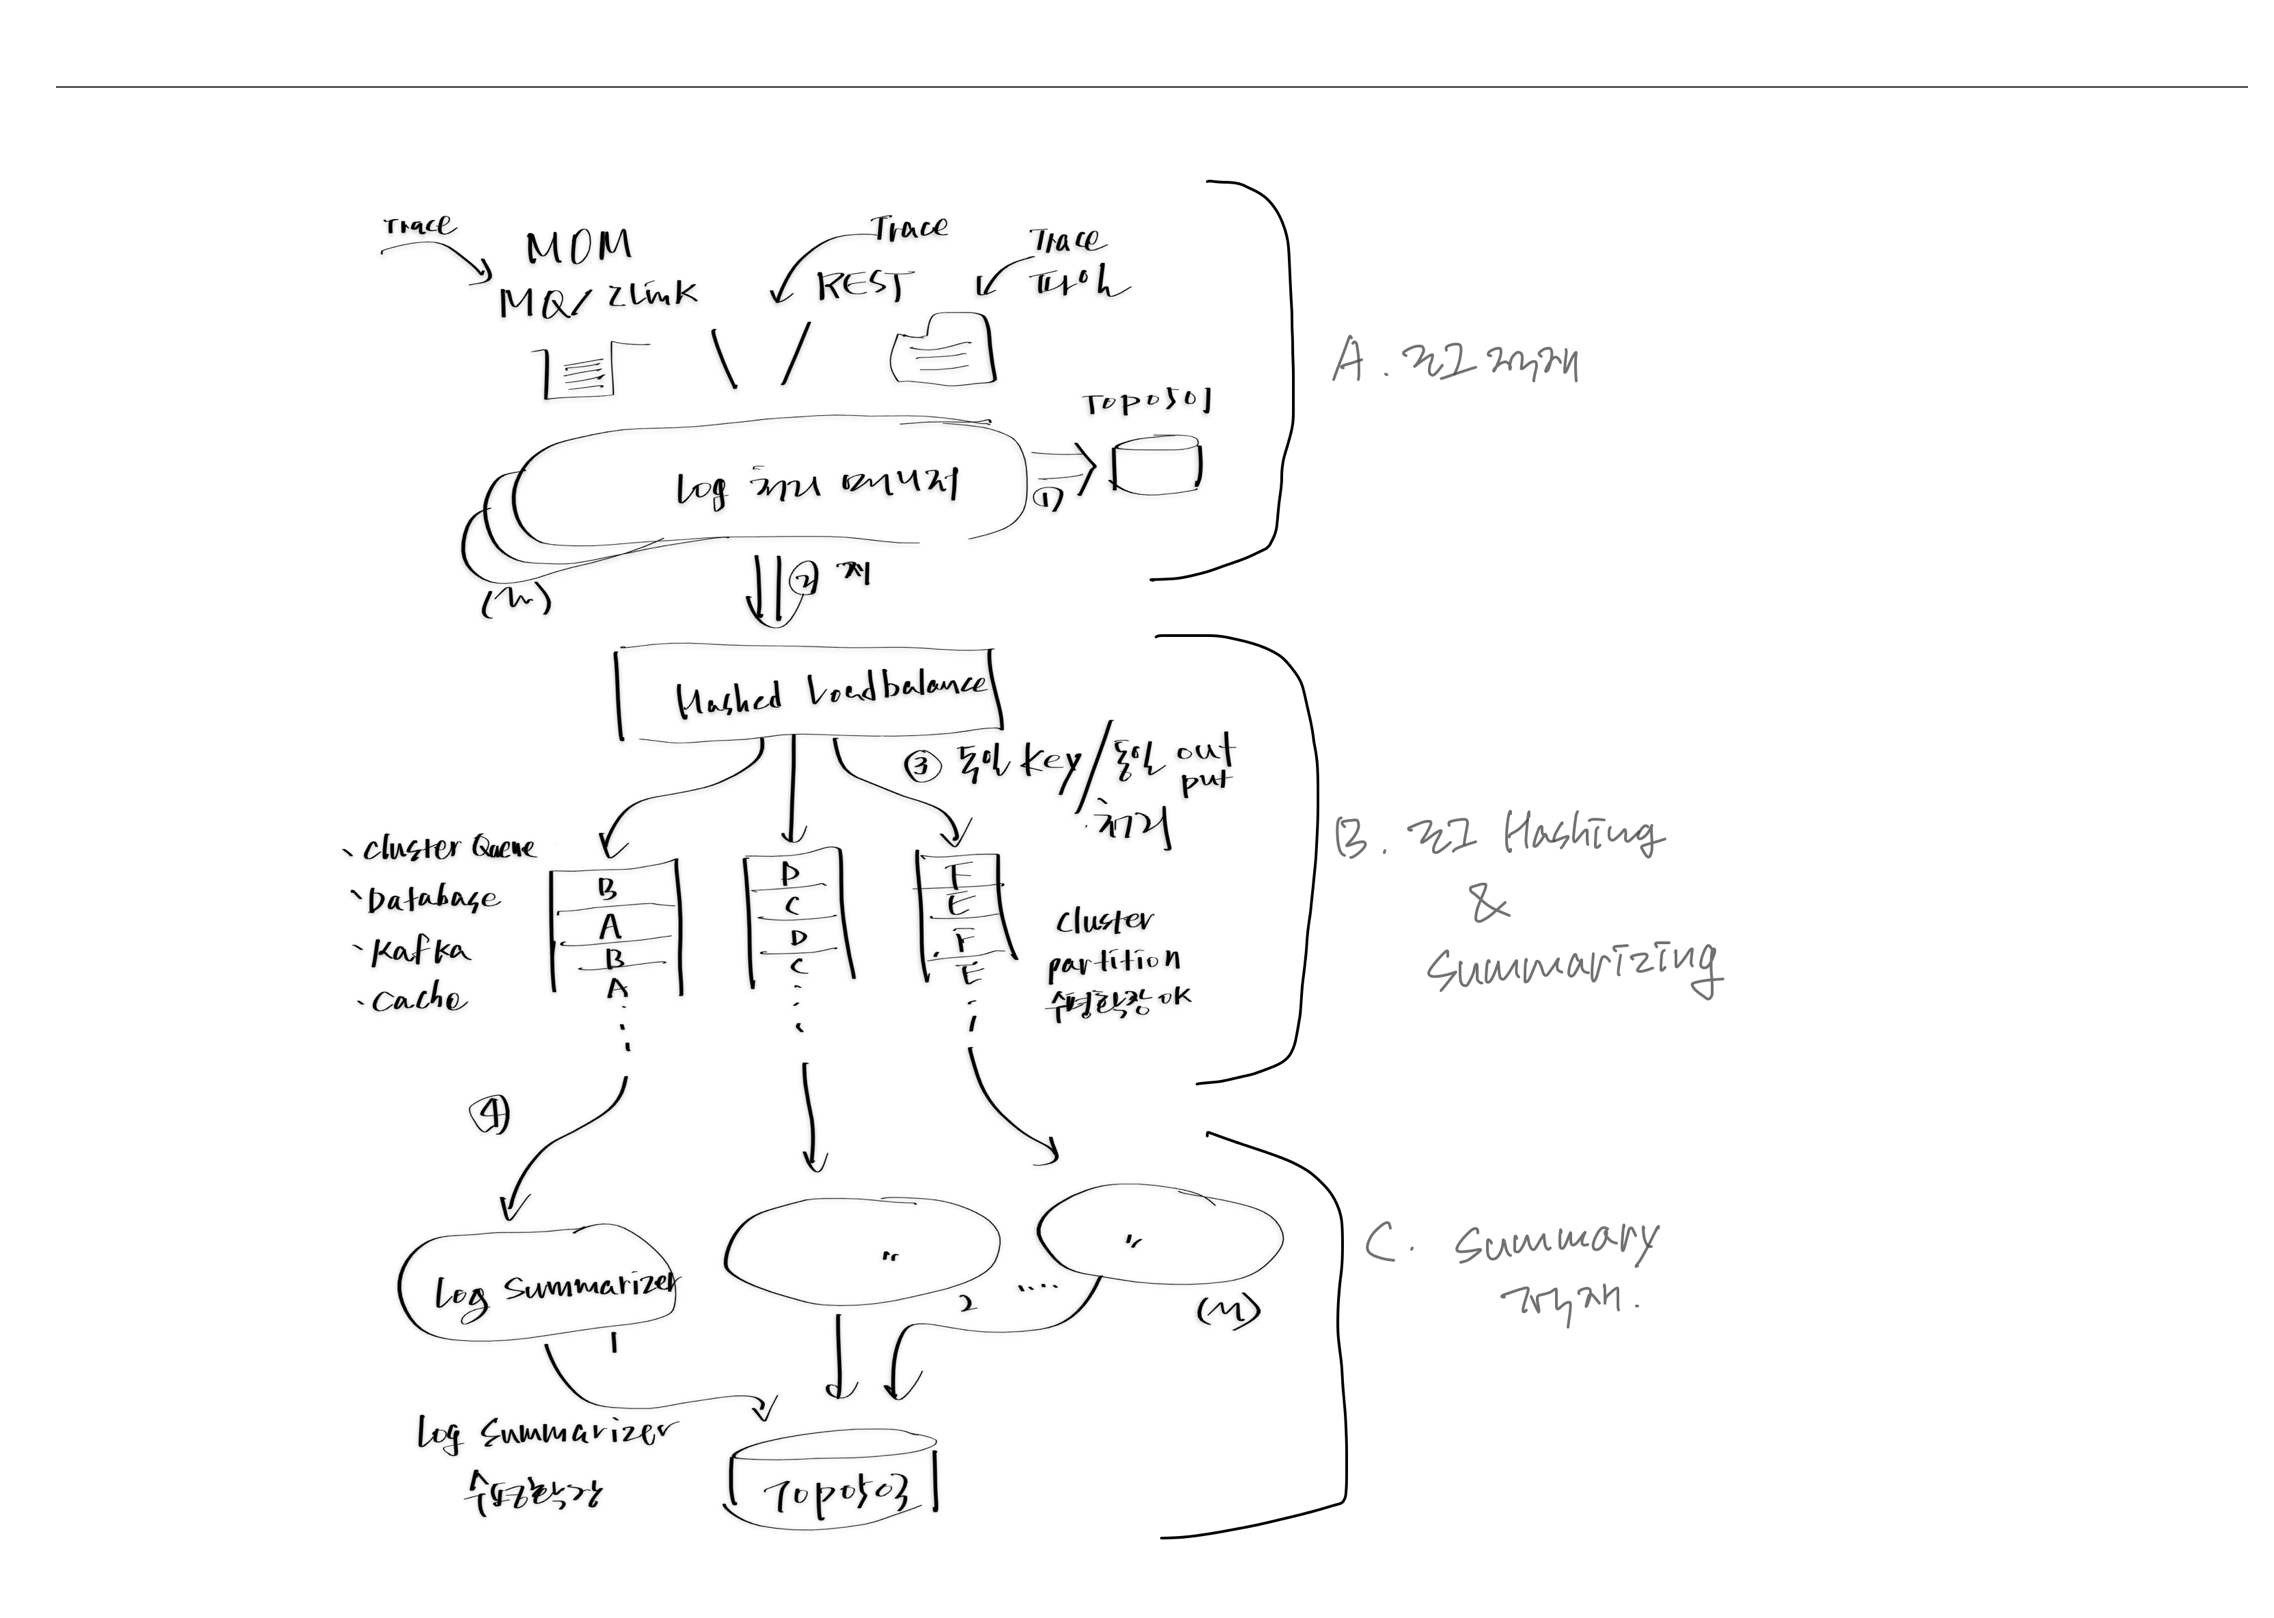 Trace
MOM
MQ/ZLink
Trace
REST
Trace
파일
A. 로그 적재
Log 처리 매니저
①
(n)
②
Hashed Loadbalance
③ 동일 Key/동일 output
처리
· Cluster Queue
· Database
· Kafka
· Cache
B
A
B
A
D
C
D
C
F
E
F
E
cluster
partition
수평확장 OK
B. 로그 Hashing
&
Summarizing
④
Log Summarizer
1
〃
2
....
〃
(n)
C. Summary
적재.
Log Summarizer
수평확장